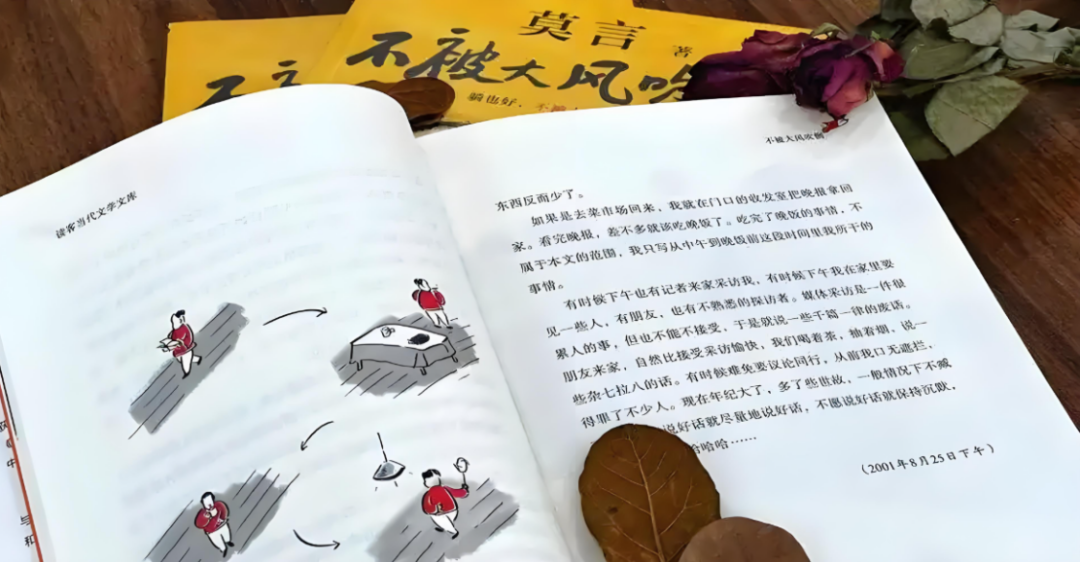 莫言
著
不被大风吹
躺也好，不
不
读客当代文学文库
不被大风吹倒
东西反而少了。
如果是去菜市场回来，我就在门口的收发室把晚报拿回
家。看完晚报，差不多就该吃晚饭了。吃完了晚饭的事情，不
属于本文的范围，我只写从中午到晚饭前这段时间里我所干的
事情。
有时候下午也有记者来家采访我，有时候下午我在家里要
见一些人，有朋友，也有不熟悉的探访者。媒体采访是一件很
累人的事，但也不能不接受，于是就说一些千篇一律的废话。
朋友来家，自然比接受采访愉快，我们喝着茶，抽着烟，说一
些杂七拉八的话。有时候难免要议论同行，从前我口无遮拦，
得罪了不少人。现在年纪大了，多了些世故，一般情况下不臧
说好话就尽量地说好话，不愿说好话就保持沉默，
哈哈哈……
（2001年8月25日下午）
中
与
和